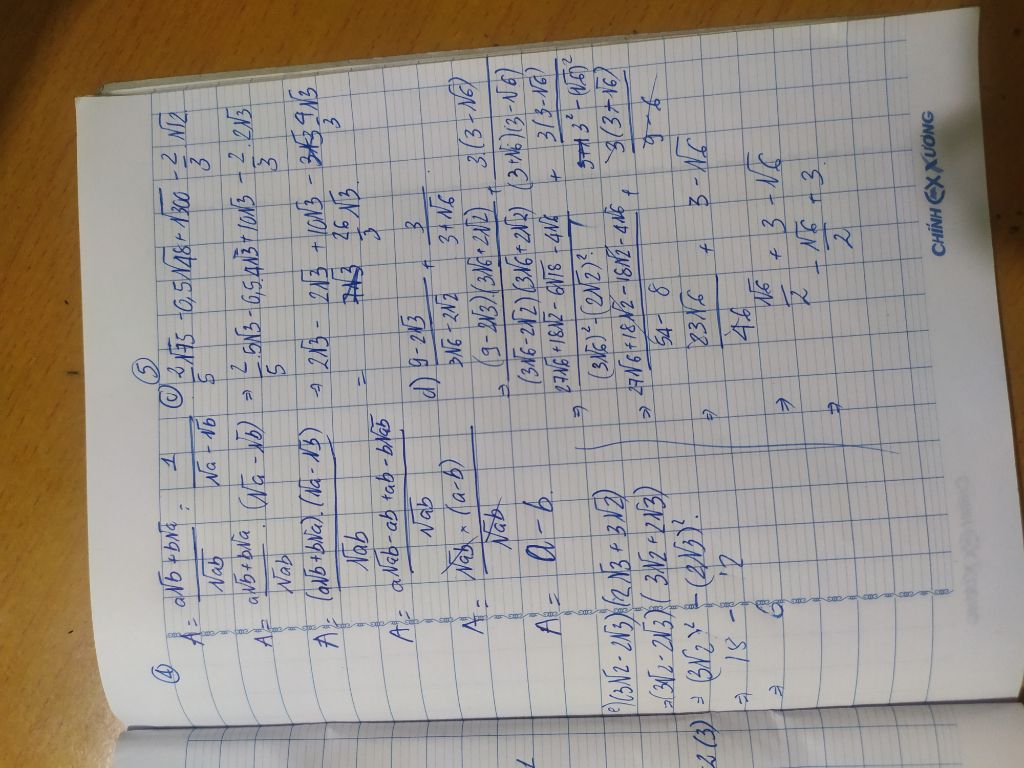 ④
A = a√b + b√a / √ab : 1 / √a - √b
A = a√b + b√a / √ab . (√a - √b)
A = (a√b + b√a).(√a - √b) / √ab
A = a√ab - ab + ab - b√ab / √ab
A = √ab × (a - b) / √ab
A = a - b.
e) (3√2 - 2√3)(2√3 + 3√2)
⇒ (3√2 - 2√3)(3√2 + 2√3)
⇒ (3√2)² - (2√3)².
⇒ 18 - 12
⇒ 6
⑤
c) 2/5 √75 - 0,5√48 + √300 - 2/3 . √12
⇒ 2/5 . 5√3 - 0,5.4√3 + 10√3 - 2/3 . 2√3
⇒ 2√3 - 2√3 + 10√3 - 4/3 √3
= 26/3 √3.
d) 9 - 2√3 / 3√6 - 2√2 + 3 / 3 + √6
⇒ (9 - 2√3).(3√6 + 2√2) / (3√6 - 2√2)(3√6 + 2√2) + 3.(3 - √6) / (3 + √6)(3 - √6)
⇒ 27√6 + 18√2 - 6√18 - 4√6 / (3√6)² - (2√2)² + 3(3 - √6) / 3² - (√6)²
⇒ 27√6 + 18√2 - 18√2 - 4√6 / 54 - 8 + 3(3 - √6) / 9 - 6
⇒ 23√6 / 46 + 3 - √6
⇒ √6 / 2 + 3 - √6
⇒ - √6 / 2 + 3.
2(3)
CHÍNH EX XƯƠNG